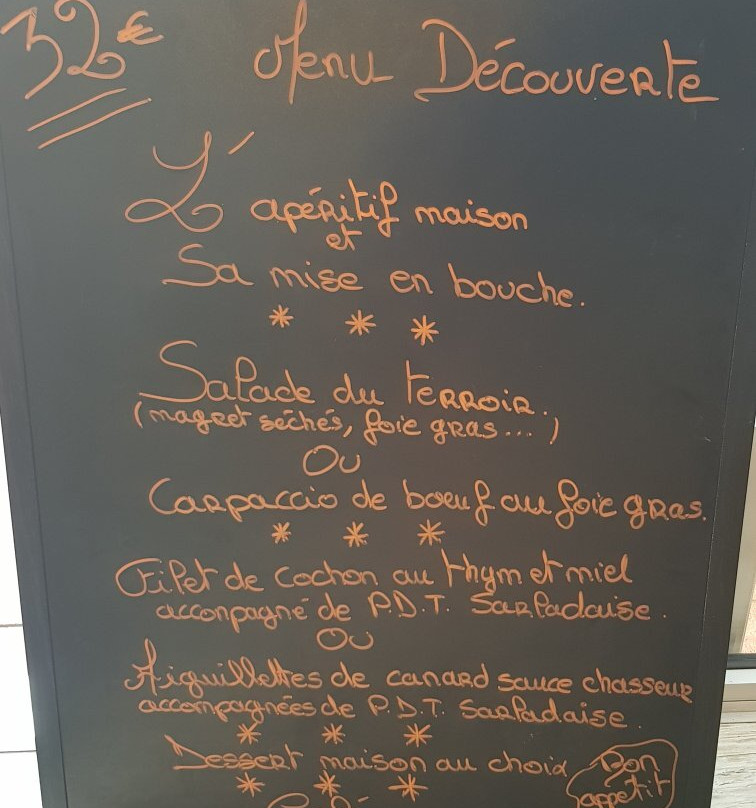 32€ Menu Découverte
L'apéritif maison
et
Sa mise en bouche.
* * *
Salade du terroir.
(magret séchés, foie gras...)
Ou
Carpaccio de boeuf au foie gras.
* * *
Filet de cochon au thym et miel
acconpagné de P.D.T. Sarladaise.
OU
Aiguillettes de canard sauce chasseur
accompagnées de P.D.T. Sarladaise.
* * *
Dessert maison au choix
* * *
Bon
appétit